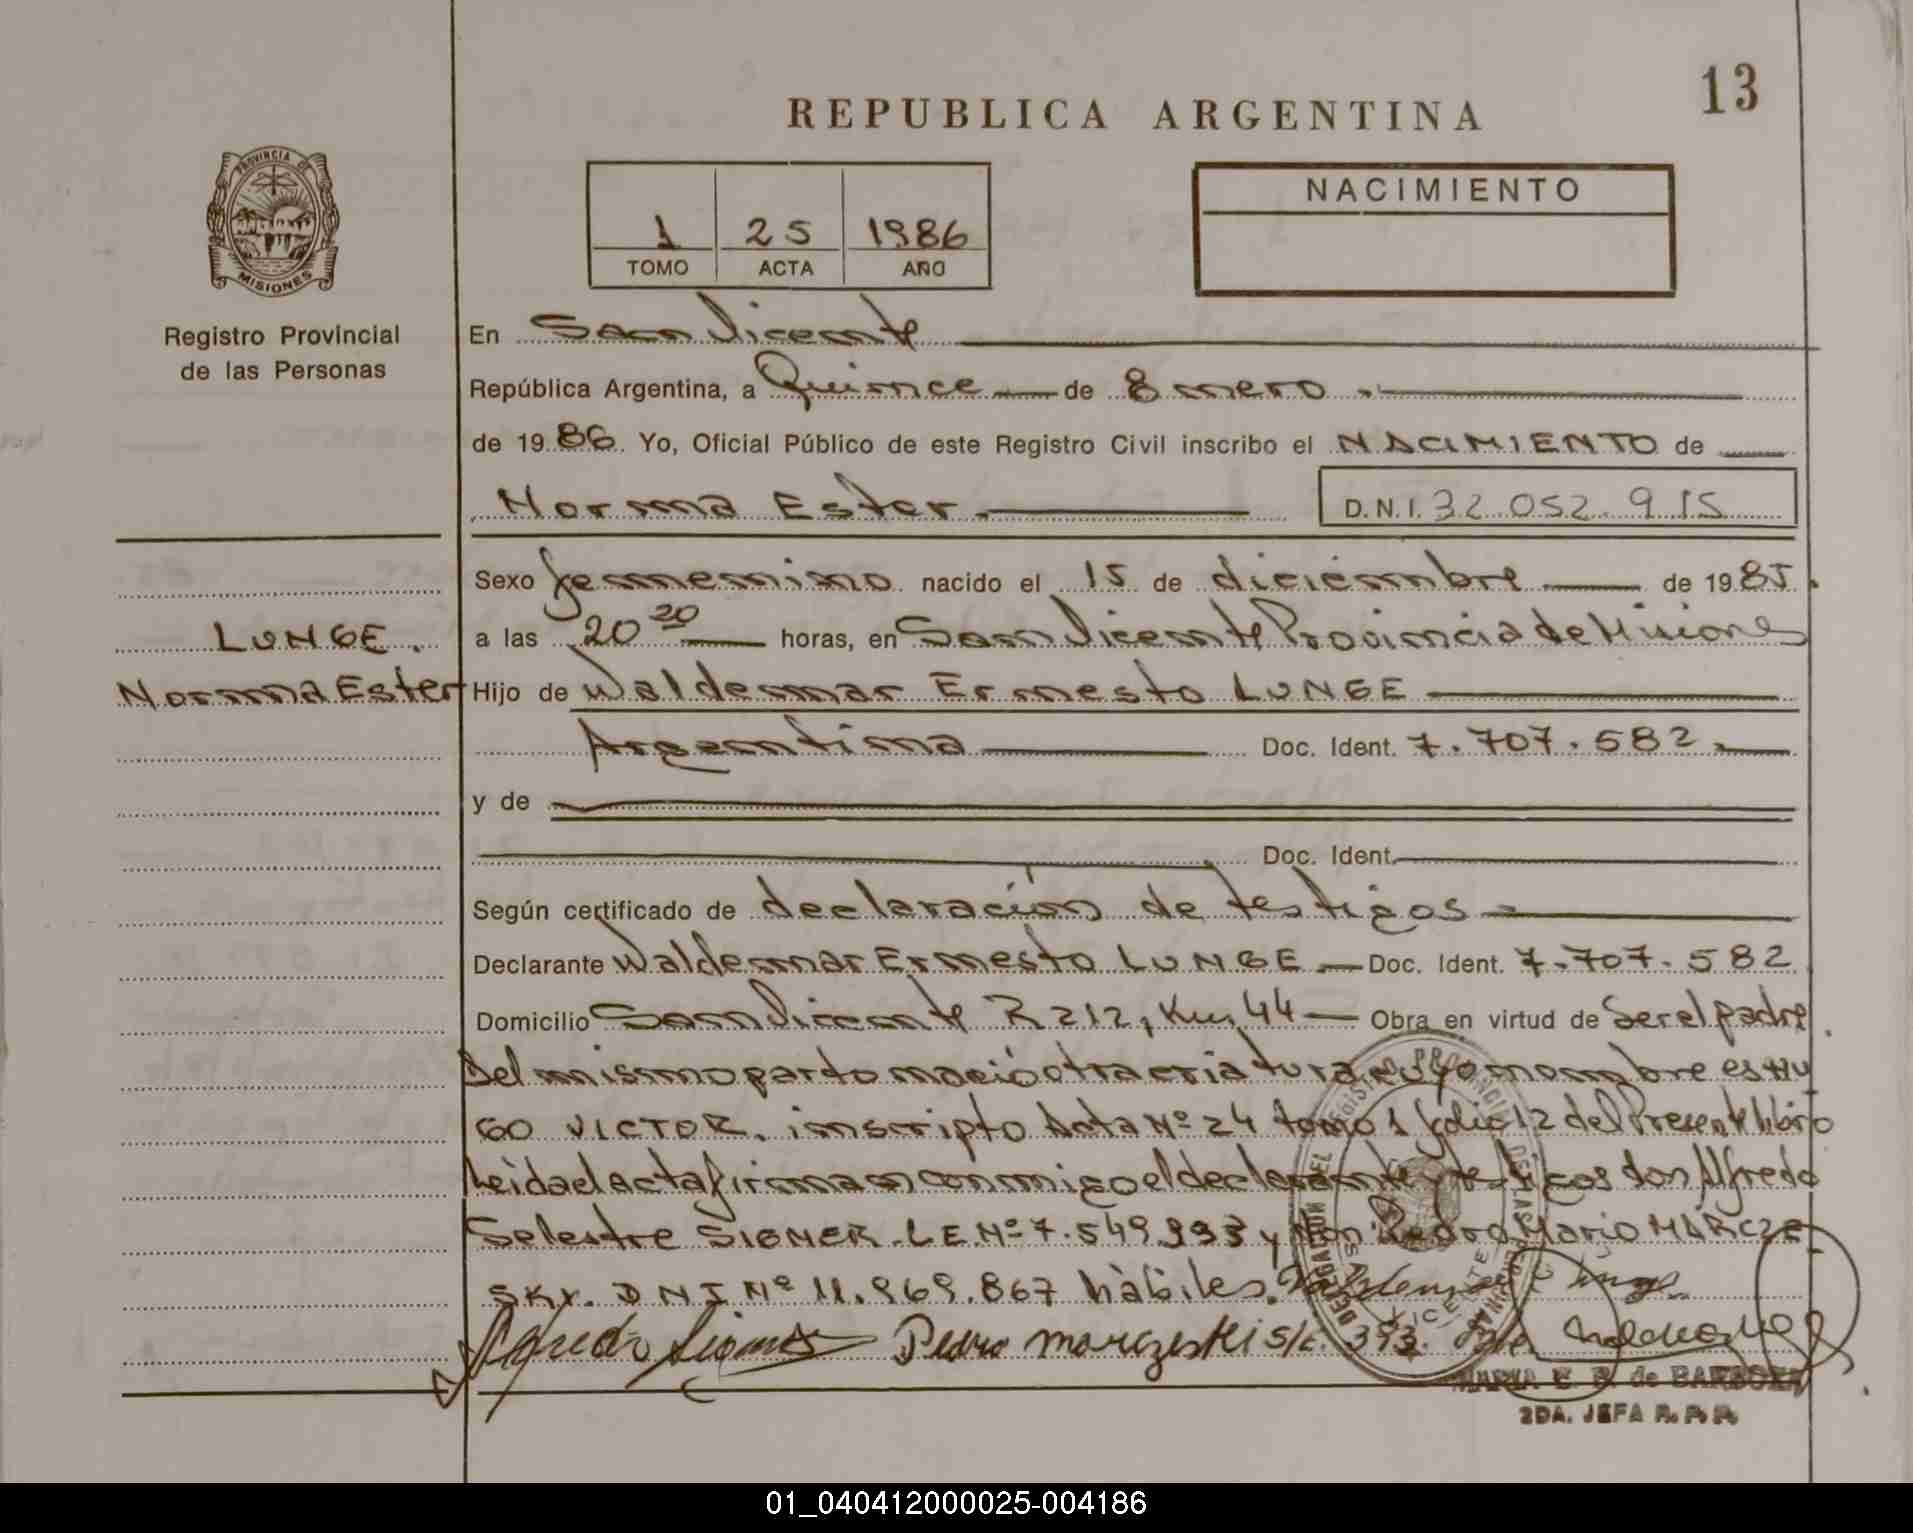 13
REPUBLICA ARGENTINA
PROVINCIA DE
MISIONES
Registro Provincial
de las Personas
1 25 1986
TOMO ACTA AÑO
NACIMIENTO
En San Vicente
República Argentina, a Quince de Enero
de 1986. Yo, Oficial Público de este Registro Civil inscribo el NACIMIENTO de
Norma Ester D.N.I. 32.052.915
Sexo femenino nacido el 15 de diciembre de 1985.
LUNGE.
Norma Ester
a las 20 20 horas, en San Vicente Provincia de Misiones
Hijo de Waldemar Ernesto LUNGE
Argentina Doc. Ident. 7.707.582
y de
Doc. Ident.
Según certificado de declaración de testigos
Declarante Waldemar Ernesto LUNGE Doc. Ident. 7.707.582
Domicilio San Vicente R 212, Km 44 Obra en virtud de Ser el padre.
Del mismo parto nació otra criatura cuyo nombre es HU
GO VICTOR, inscripto Acta Nº 24 tomo 1 folio 12 del Presente libro
Leida el acta firman conmigo el declarante y testigos don Alfredo
Selestre SIGNER. L E. Nº 7.549.993 y don Pedro Mario MARCZE
SKY. D N I Nº 11.969.867 hàbiles.
Pedro Marczeski S/c. 393.
MARIA E. B. de BARBOZA
2DA. JEFA R. P. P.
01_040412000025-004186